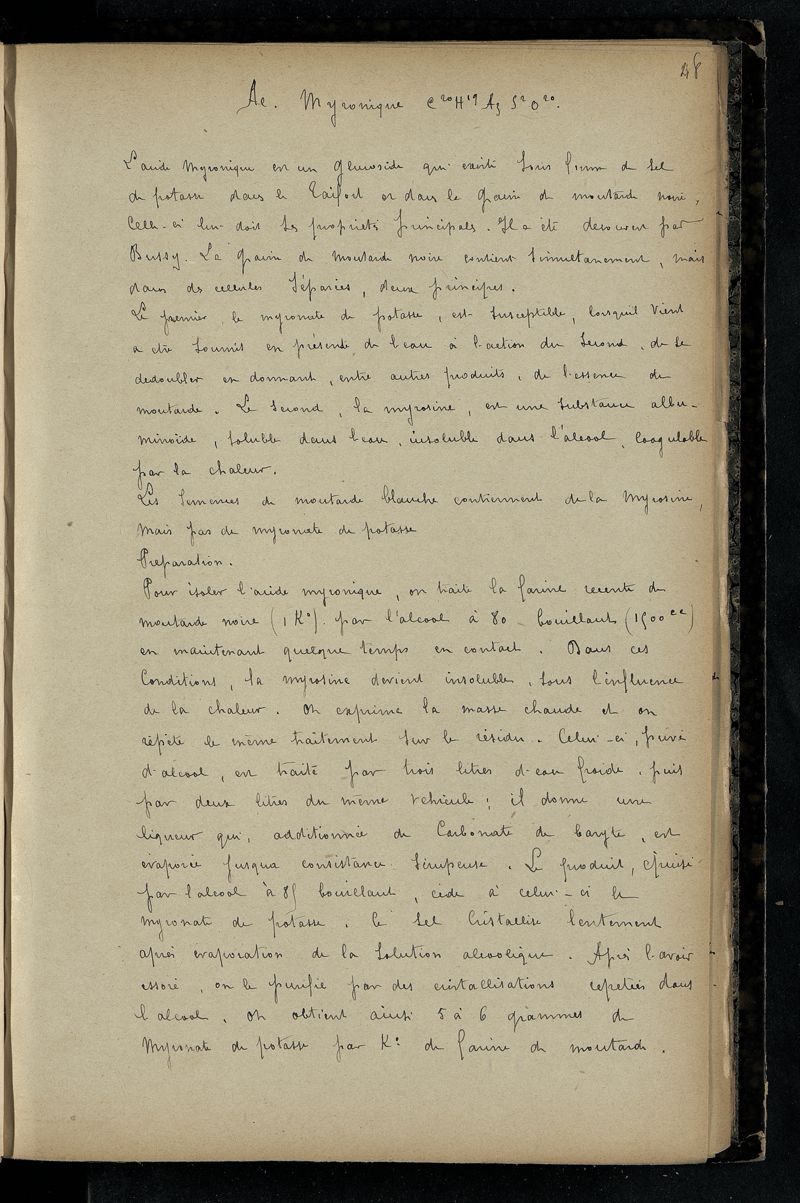 48
Ac. Myronique C²⁰H¹⁹ Az S²O²⁰.
L'acide myronique est un glucoside qui existe sous forme de sel
de potasse dans le Raifort et dans la graine de moutarde noire,
Celle-ci lui doit ses propriétés principales. Il a été découvert par
Bussy. La graine de moutarde noire contient simultanement, mais
dans des cellules séparées, deux principes.
Le premier, le myronate de potasse, est susceptible, lorsquil vient
a etre soumis en présence de l'eau à l'action du second, de se
dedoubler en donnant, entre autres produits, de l'essence de
moutarde. Le second, la myrosine, est une substance albu-
minoïde, soluble dans l'eau, insoluble dans l'alcool, coagulable
par la chaleur.
Les semences de moutarde blanche contiennent de la myrosine,
mais pas de myronate de potasse
Préparation.
Pour isoler l'acide myronique, on traite la farine recente de
moutarde noire (1 K°) par l'alcool à 80 bouillant (1500 cc)
en maintenant quelque temps en contact. Dans ces
Conditions, la myrosine devient insoluble, sous l'influence
de la chaleur. On exprime la masse chaude et on
répète le même traitement sur le résidu. Celui-ci, privé
d'alcool, est traité par trois litres d'eau froide, puis
par deux litres du même vehicule; il donne une
liqueur qui, additionnée de Carbonate de baryte, est
evaporée jusqua consistance sirupeuse. Le produit, épuisé
par l'alcool à 85 bouillant, cède à celui-ci le
myronate de potasse. Le sel cristallise lentement
après evaporation de la solution alcoolique. Après l'avoir
essoré, on le purifie par des cristallisations repetées dans
l'alcool. On obtient ainsi 5 à 6 grammes de
Myronate de potasse par K° de farine de moutarde.